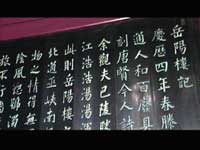 岳陽樓記
慶曆四年春滕
通人和百廢具
刻唐賢今人詩
余觀夫巴陵
江浩浩湯湯
則岳陽樓
北通巫峽南
物之情得無
陰風怒號